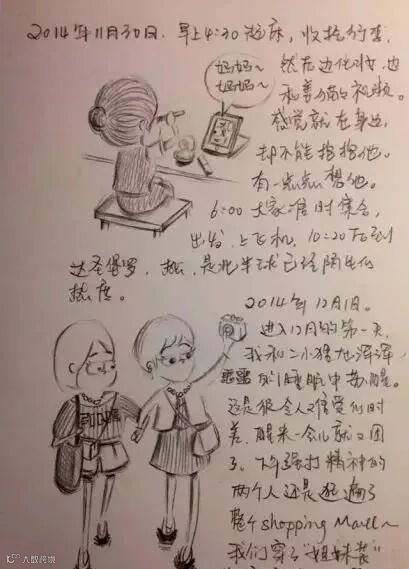 2014年11月30日. 早上4:30起床, 收拾行李,
妈妈~
妈妈~
然后边化妆, 也
和善猫猫视频。
感觉就在身边,
却不能抱抱他。
有一点点想他。
6:00 大家准时集合,
出发, 上飞机, 10:20 到
达圣保罗. 热, 是北半球已经陌生的
热度。
2014年12月1日.
进入12月的第一天,
我和二小猪从浑浑
噩噩的睡眠中苏醒。
还是很令人难受的时
差, 醒来一会儿就又困
了. 下午强打精神的
两个人还是逛遍了
整个shopping Mall~
我们穿了"姐妹装"
大数跨境